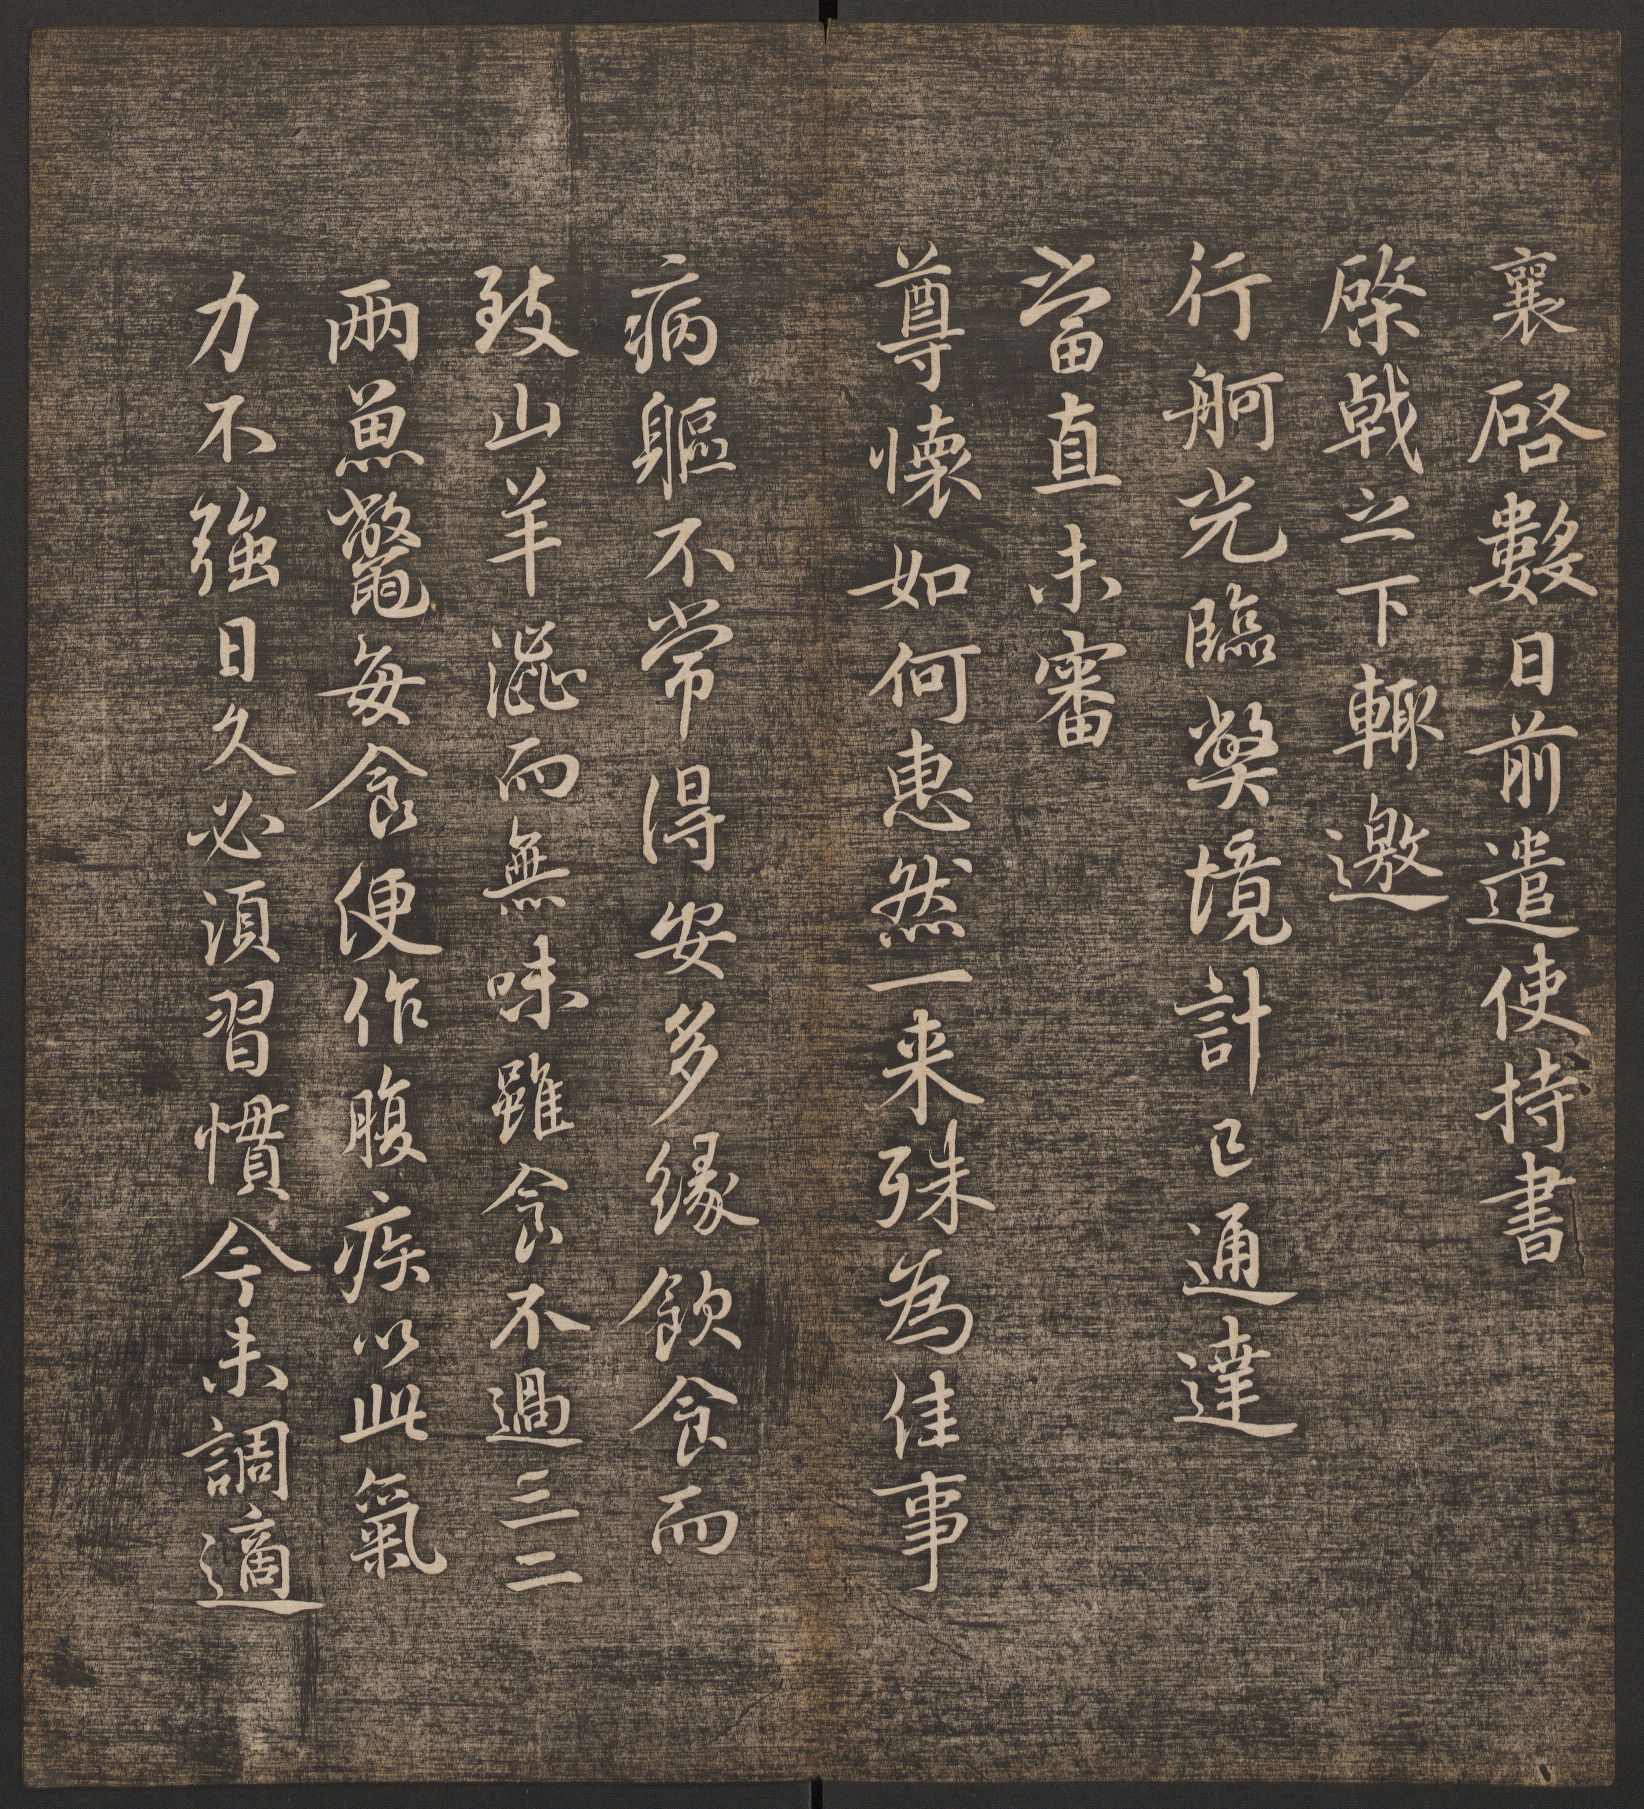 襄啓數日前遣使持書
棨戟之下輙邀
行舸光臨弊境計已通達
當直未審
尊懷如何惠然一来殊為佳事
病軀不常得安多縁飲食而
致山羊澁而無味雖食不過三二
兩魚鼈每食便作腹疾以此氣
力不強日久必須習慣今未調適